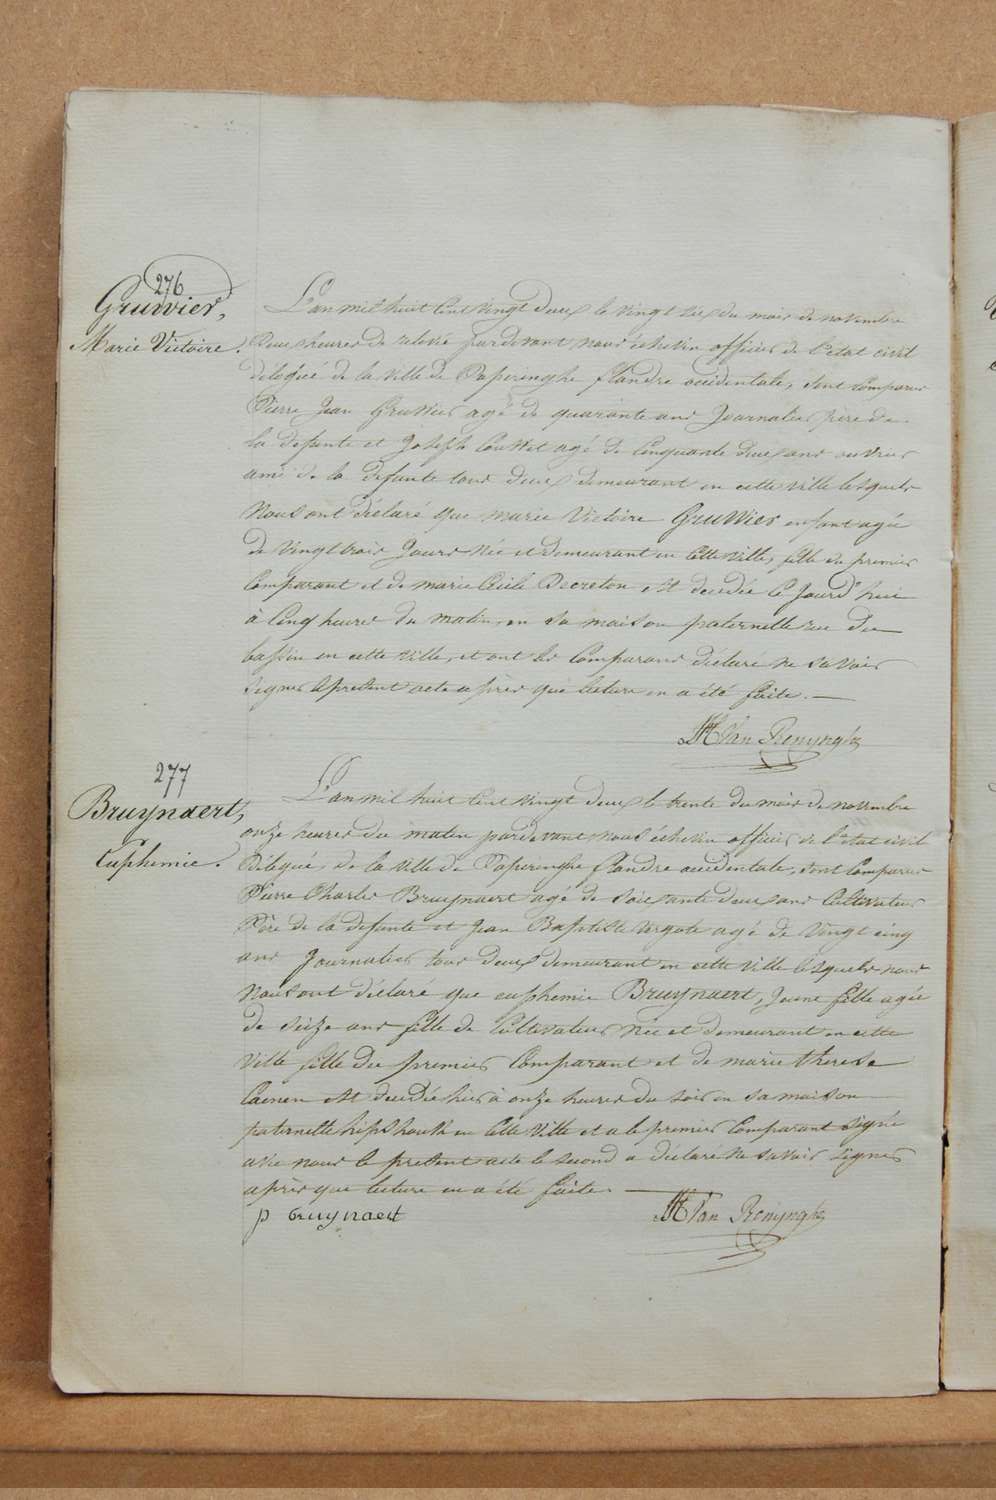 276
Gruwier,
Marie Victoire.
L'an mil huit cent vingt deux le vingt six du mois de novembre
deux heures de relevée pardevant nous échevin officier de l'état civil
délégué de la ville de Poperinghe flandre occidentale, sont comparus
Pierre Jean Gruwier agé de quarante ans Journalier père de
la défunte et Joseph agé de Cinquante deux ans ouvrier
ami de la défunte tous deux demeurant en cette ville lesquels
Nous ont déclaré que marie Victoire Gruwier enfant agée
de vingt trois Jours née et demeurant en cette ville, fille du premier
Comparant et de marie Cécile Decreton est decedée ce Jourd'hui
à Cinq heures du matin, en sa maison paternelle rue du
bassin en cette ville, et ont les Comparans déclaré ne savoir
signer le present acte après que lecture en a été faite. —
Van Renynghe
277
Bruynaert,
Euphemie.
L'an mil huit cent vingt deux le trente du mois de novembre
onze heures du matin pardevant nous échevin officier de l'état civil
Délégué de la ville de Poperinghe flandre occidentale, sont Comparus
Pierre Charles Bruynaert agé de soixante deux ans Cultivateur
Père de la defunte et Jean Baptiste Vergote agé de Vingt cinq
ans Journalier tous deux demeurant en cette ville lesquels nous
Nous ont déclaré que euphemie Bruynaert, Jeune fille agée
de seize ans fille de Cultivateur née et demeurant en cette
ville fille du premier Comparant et de marie therese
Caenen est decedée hier à onze heures du soir en sa maison
paternelle en cette ville et a le premier Comparant signé
avec nous le present acte le second a déclaré ne savoir signer
après que lecture en a été faite. —
p Bruynaert
Van Renynghe